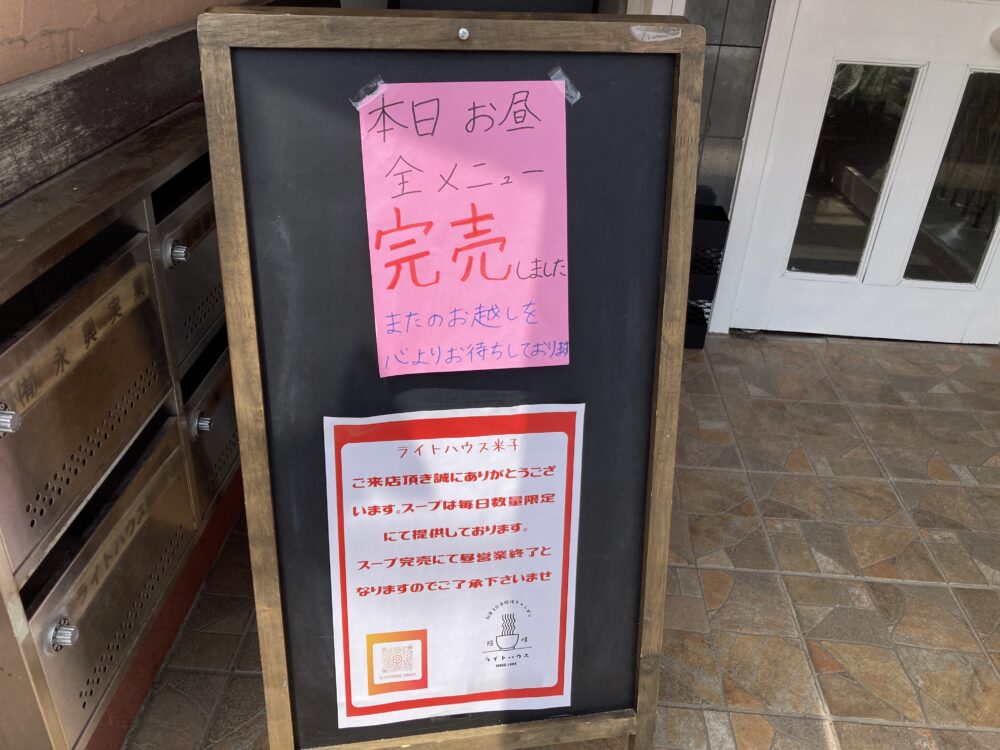 本日 お昼
全メニュー
完売しました
またのお越しを
心よりお待ちしております
ライトハウス米子
ご来店頂き誠にありがとうござ
います。スープは毎日数量限定
にて提供しております。
スープ完売にて昼営業終了と
なりますのでご了承下さいませ
ライトハウス
(有)永興実業
ライトハウス